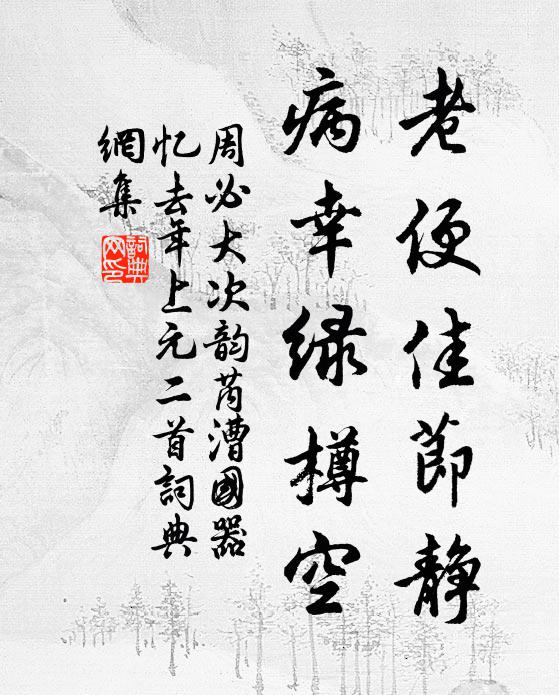 老便佳節静
病幸绿樽空
周必大次韵芮漕國器
忆去年上元二首詞典
網集
詞典网印